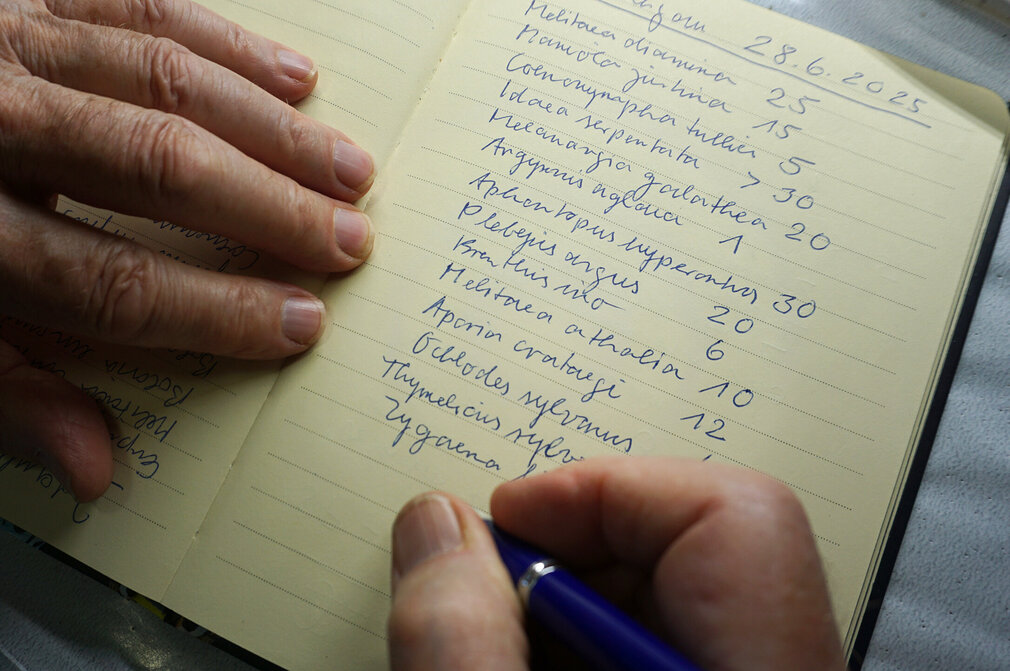 28.6.2025
Melitaea diamina 25
Maniola jurtina 15
Coenonympha tullia 5
Idaea serpentata > 30
Melanargia galathea 20
Argynnis aglaia 1
Aphantopus hyperanthus 30
Plebejus argus 20
Brenthis ino 6
Melitaea athalia 10
Aporia crataegi 12
Ochlodes sylvanus
Thymelicus sylv
Zygaena